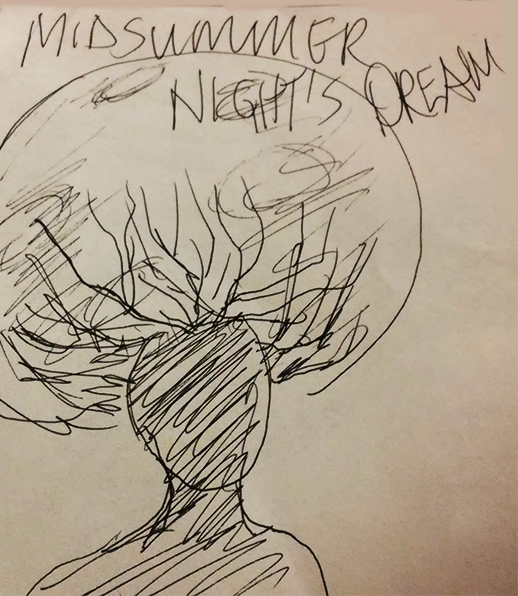 MIDSUMMER
NIGHT'S DREAM